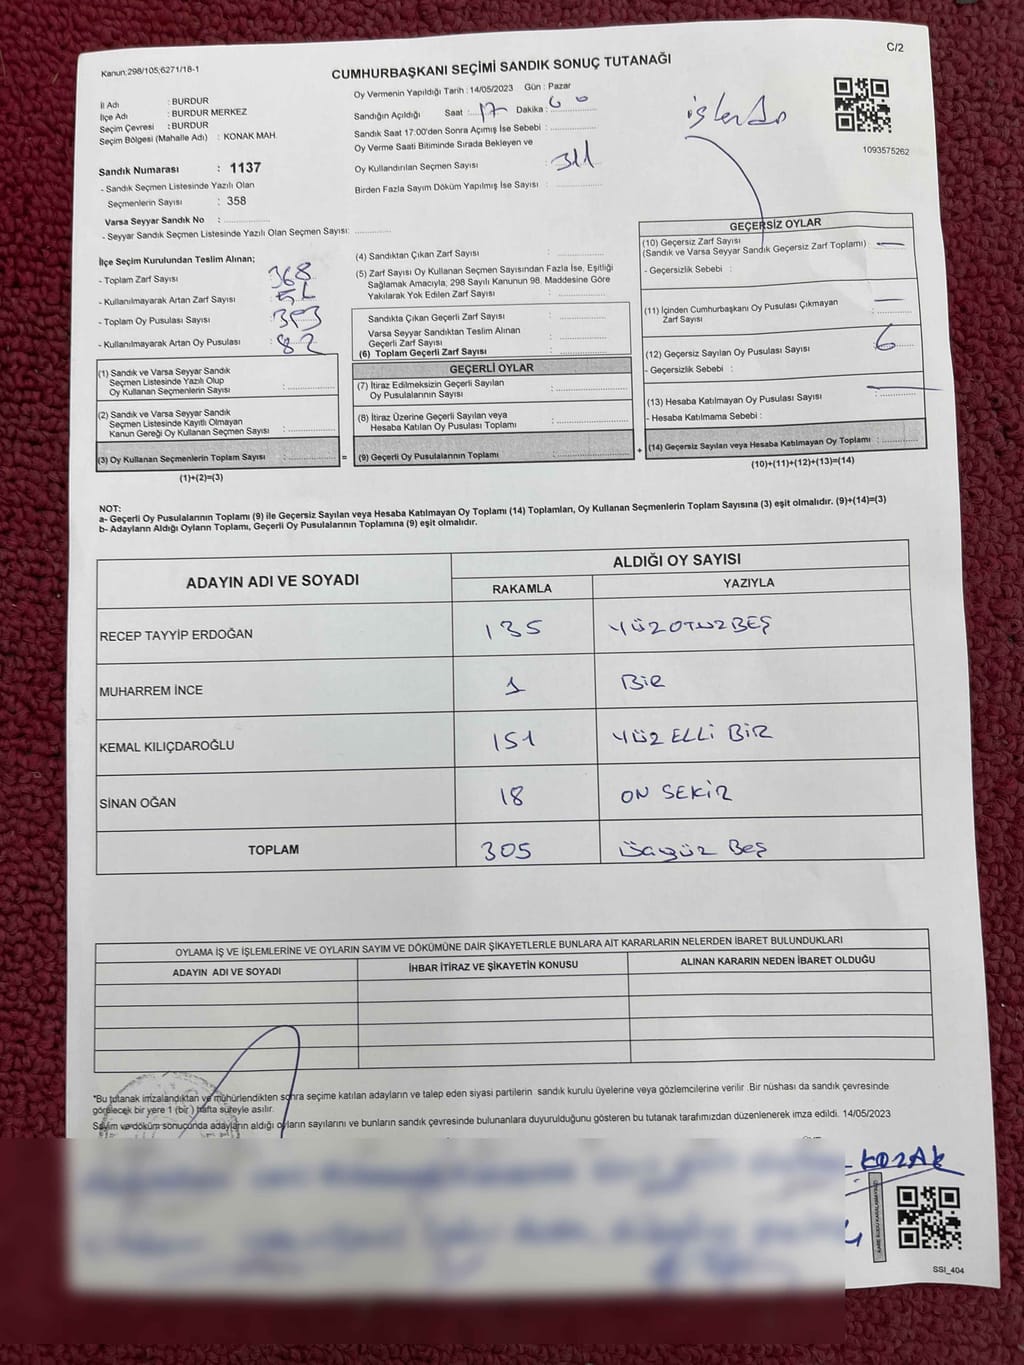 C/2
Kanun;298/105;6271/18-1
CUMHURBAŞKANI SEÇİMİ SANDIK SONUÇ TUTANAĞI
İl Adı : BURDUR
İlçe Adı : BURDUR MERKEZ
Seçim Çevresi : BURDUR
Seçim Bölgesi (Mahalle Adı) : KONAK MAH.
Sandık Numarası : 1137
- Sandık Seçmen Listesinde Yazılı Olan
Seçmenlerin Sayısı : 358
Varsa Seyyar Sandık No :
- Seyyar Sandık Seçmen Listesinde Yazılı Olan Seçmen Sayısı:
Oy Vermenin Yapıldığı Tarih : 14/05/2023 Gün : Pazar
Sandığın Açıldığı Saat : 17 Dakika :
Sandık Saat 17:00'den Sonra Açımış İse Sebebi :
Oy Verme Saati Bitiminde Sırada Bekleyen ve
Oy Kullandırılan Seçmen Sayısı : 311
Birden Fazla Sayım Döküm Yapılmış İse Sayısı :
işlendi
1093575262
İlçe Seçim Kurulundan Teslim Alınan;
- Toplam Zarf Sayısı : 368
- Kullanılmayarak Artan Zarf Sayısı :
- Toplam Oy Pusulası Sayısı : 393
- Kullanılmayarak Artan Oy Pusulası : 82
(1) Sandık ve Varsa Seyyar Sandık
Seçmen Listesinde Yazılı Olup
Oy Kullanan Seçmenlerin Sayısı :
(2) Sandık ve Varsa Seyyar Sandık
Seçmen Listesinde Kayıtlı Olmayan
Kanun Gereği Oy Kullanan Seçmen Sayısı :
(3) Oy Kullanan Seçmenlerin Toplam Sayısı :
(1)+(2)=(3)
=
(4) Sandıktan Çıkan Zarf Sayısı :
(5) Zarf Sayısı Oy Kullanan Seçmen Sayısından Fazla İse, Eşitliği
Sağlamak Amacıyla, 298 Sayılı Kanunun 98. Maddesine Göre
Yakılarak Yok Edilen Zarf Sayısı :
Sandıkta Çıkan Geçerli Zarf Sayısı :
Varsa Seyyar Sandıktan Teslim Alınan
Geçerli Zarf Sayısı :
(6) Toplam Geçerli Zarf Sayısı :
GEÇERLİ OYLAR
(7) İtiraz Edilmeksizin Geçerli Sayılan
Oy Pusulalarının Sayısı :
(8) İtiraz Üzerine Geçerli Sayılan veya
Hesaba Katılan Oy Pusulası Toplamı :
(9) Geçerli Oy Pusulalarının Toplamı :
+
GEÇERSİZ OYLAR
(10) Geçersiz Zarf Sayısı
(Sandık ve Varsa Seyyar Sandık Geçersiz Zarf Toplamı) : —
- Geçersizlik Sebebi :
(11) İçinden Cumhurbaşkanı Oy Pusulası Çıkmayan
Zarf Sayısı : —
(12) Geçersiz Sayılan Oy Pusulası Sayısı : 6
- Geçersizlik Sebebi :
(13) Hesaba Katılmayan Oy Pusulası Sayısı : —
- Hesaba Katılmama Sebebi :
(14) Geçersiz Sayılan veya Hesaba Katılmayan Oy Toplamı :
(10)+(11)+(12)+(13)=(14)
NOT:
a- Geçerli Oy Pusulalarının Toplamı (9) ile Geçersiz Sayılan veya Hesaba Katılmayan Oy Toplamı (14) Toplamları, Oy Kullanan Seçmenlerin Toplam Sayısına (3) eşit olmalıdır. (9)+(14)=(3)
b- Adayların Aldığı Oyların Toplamı, Geçerli Oy Pusulalarının Toplamına (9) eşit olmalıdır.
ADAYIN ADI VE SOYADI
ALDIĞI OY SAYISI
RAKAMLA YAZIYLA
RECEP TAYYİP ERDOĞAN 135 YÜZ OTUZ BEŞ
MUHARREM İNCE 1 BİR
KEMAL KILIÇDAROĞLU 151 YÜZ ELLİ BİR
SİNAN OĞAN 18 ON SEKİZ
TOPLAM 305 Üçyüz Beş
OYLAMA İŞ VE İŞLEMLERİNE VE OYLARIN SAYIM VE DÖKÜMÜNE DAİR ŞİKAYETLERLE BUNLARA AİT KARARLARIN NELERDEN İBARET BULUNDUKLARI
ADAYIN ADI VE SOYADI İHBAR İTİRAZ VE ŞİKAYETİN KONUSU ALINAN KARARIN NEDEN İBARET OLDUĞU
*Bu tutanak imzalandıktan ve mühürlendikten sonra seçime katılan adayların ve talep eden siyasi partilerin sandık kurulu üyelerine veya gözlemcilerine verilir .Bir nüshası da sandık çevresinde
görülecek bir yere 1 (bir ) hafta süreyle asılır.
Sayım ve döküm sonucunda adayların aldığı oyların sayılarını ve bunların sandık çevresinde bulunanlara duyurulduğunu gösteren bu tutanak tarafımızdan düzenlenerek imza edildi. 14/05/2023
KOZAK
SSI_404